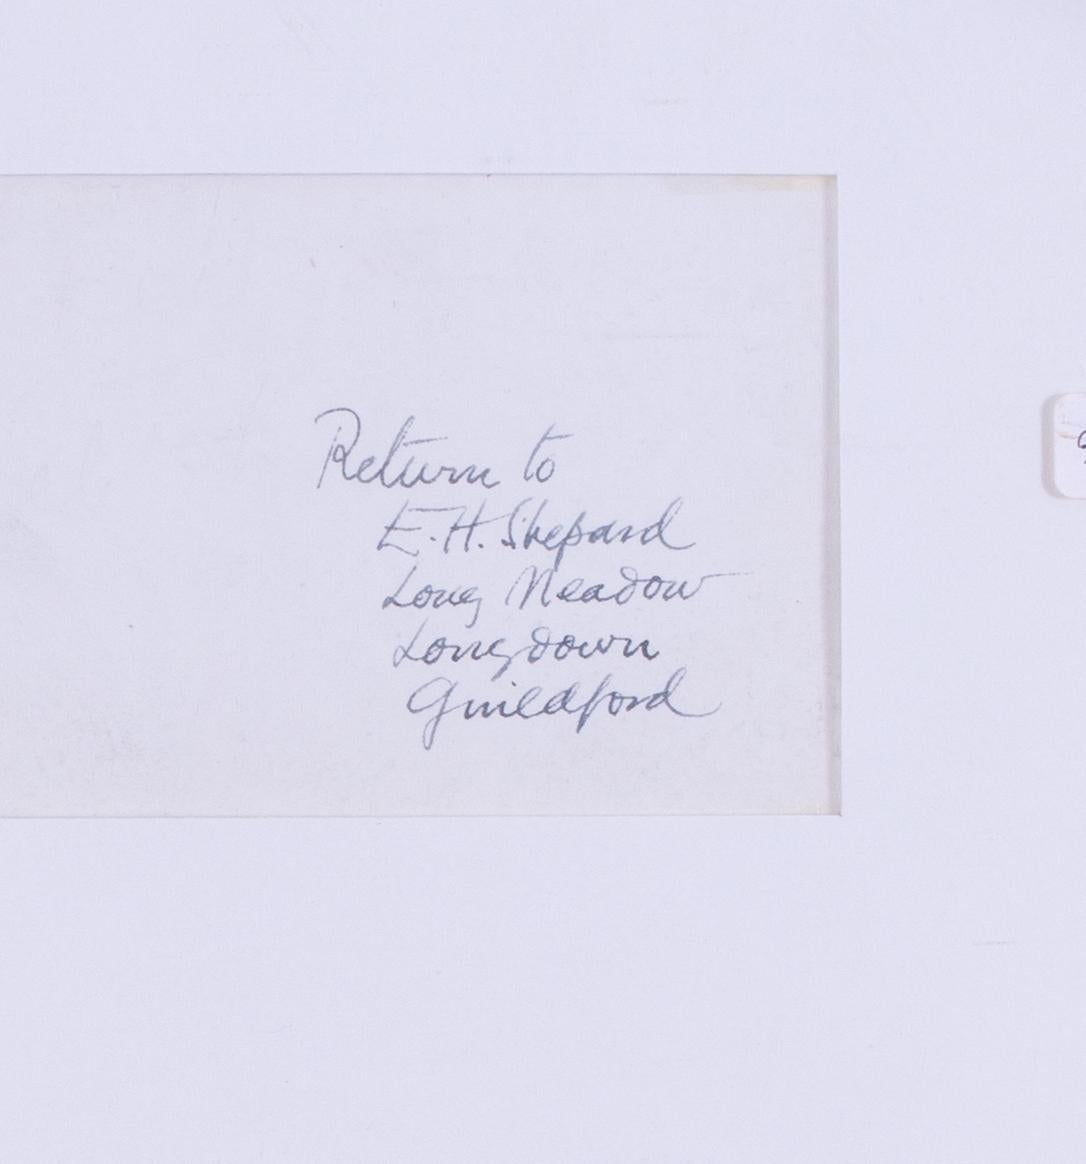 Return to
E. H. Shepard
Long Meadow
Longdown
Guildford